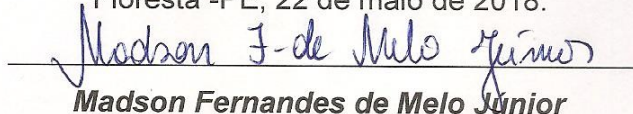 Floresta -PE, 22 de maio de 2018.
Madson F. de Melo Júnior
Madson Fernandes de Melo Júnior